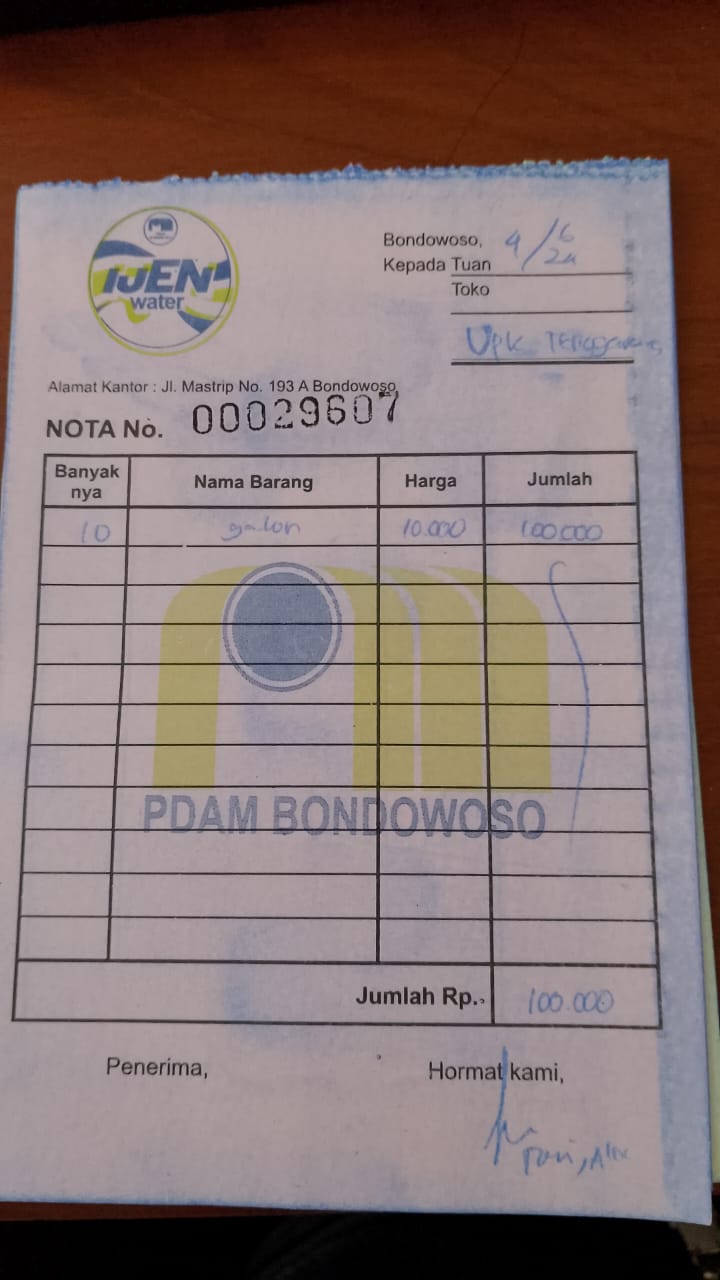 IJEN
water
Bondowoso, 4/6/24
Kepada Tuan
Toko
Upk
Alamat Kantor : Jl. Mastrip No. 193 A Bondowoso
NOTA No. 00029607
Banyak nya Nama Barang Harga Jumlah
10 galon 10.000 100.000
PDAM BONDOWOSO
Jumlah Rp. 100.000
Penerima, Hormat kami,